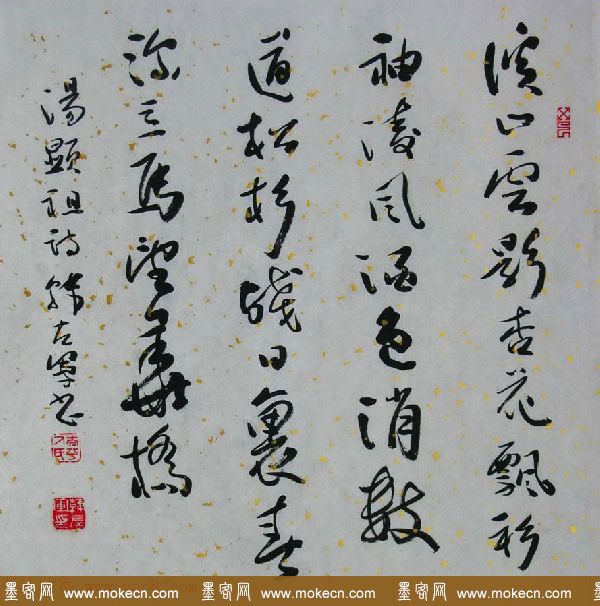 溪山雲影杏花飄衫
袖凌風酒色消數
道松杉殘日裏春
深立馬望華橋
湯顯祖詩韓左軍書
墨客网 www.mokecn.com 墨客网 www.mokecn.com 墨客网 www.mokecn.com